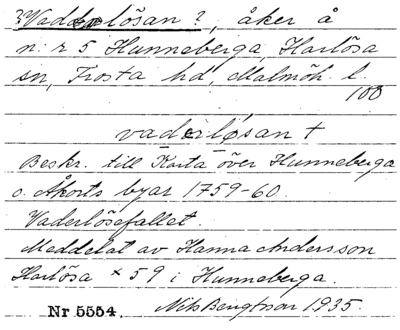 ?Vaderlösan?, åker å
n:r 5 Hunneberga, Harlösa
sn, Frosta hd, Malmöh. l.
100
vaderlösan +
Beskr. till Karta över Hunneberga
o. Åkorts byar 1759-60
Vaderlösefallet.
Meddelat av Hanna Andersson
Harlösa × 59 i Hunneberga.
Nr 5554. Nils Bengtsson 1935.